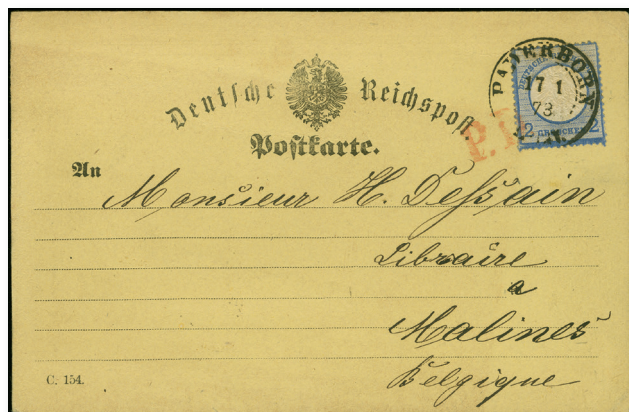 Deutsche Reichspost.
Postkarte.
PADERBORN
17 1
73
GROSCHEN
P.
An
Monsieur H. Dessain
Libraire
à
Malines
Belgique
C. 154.